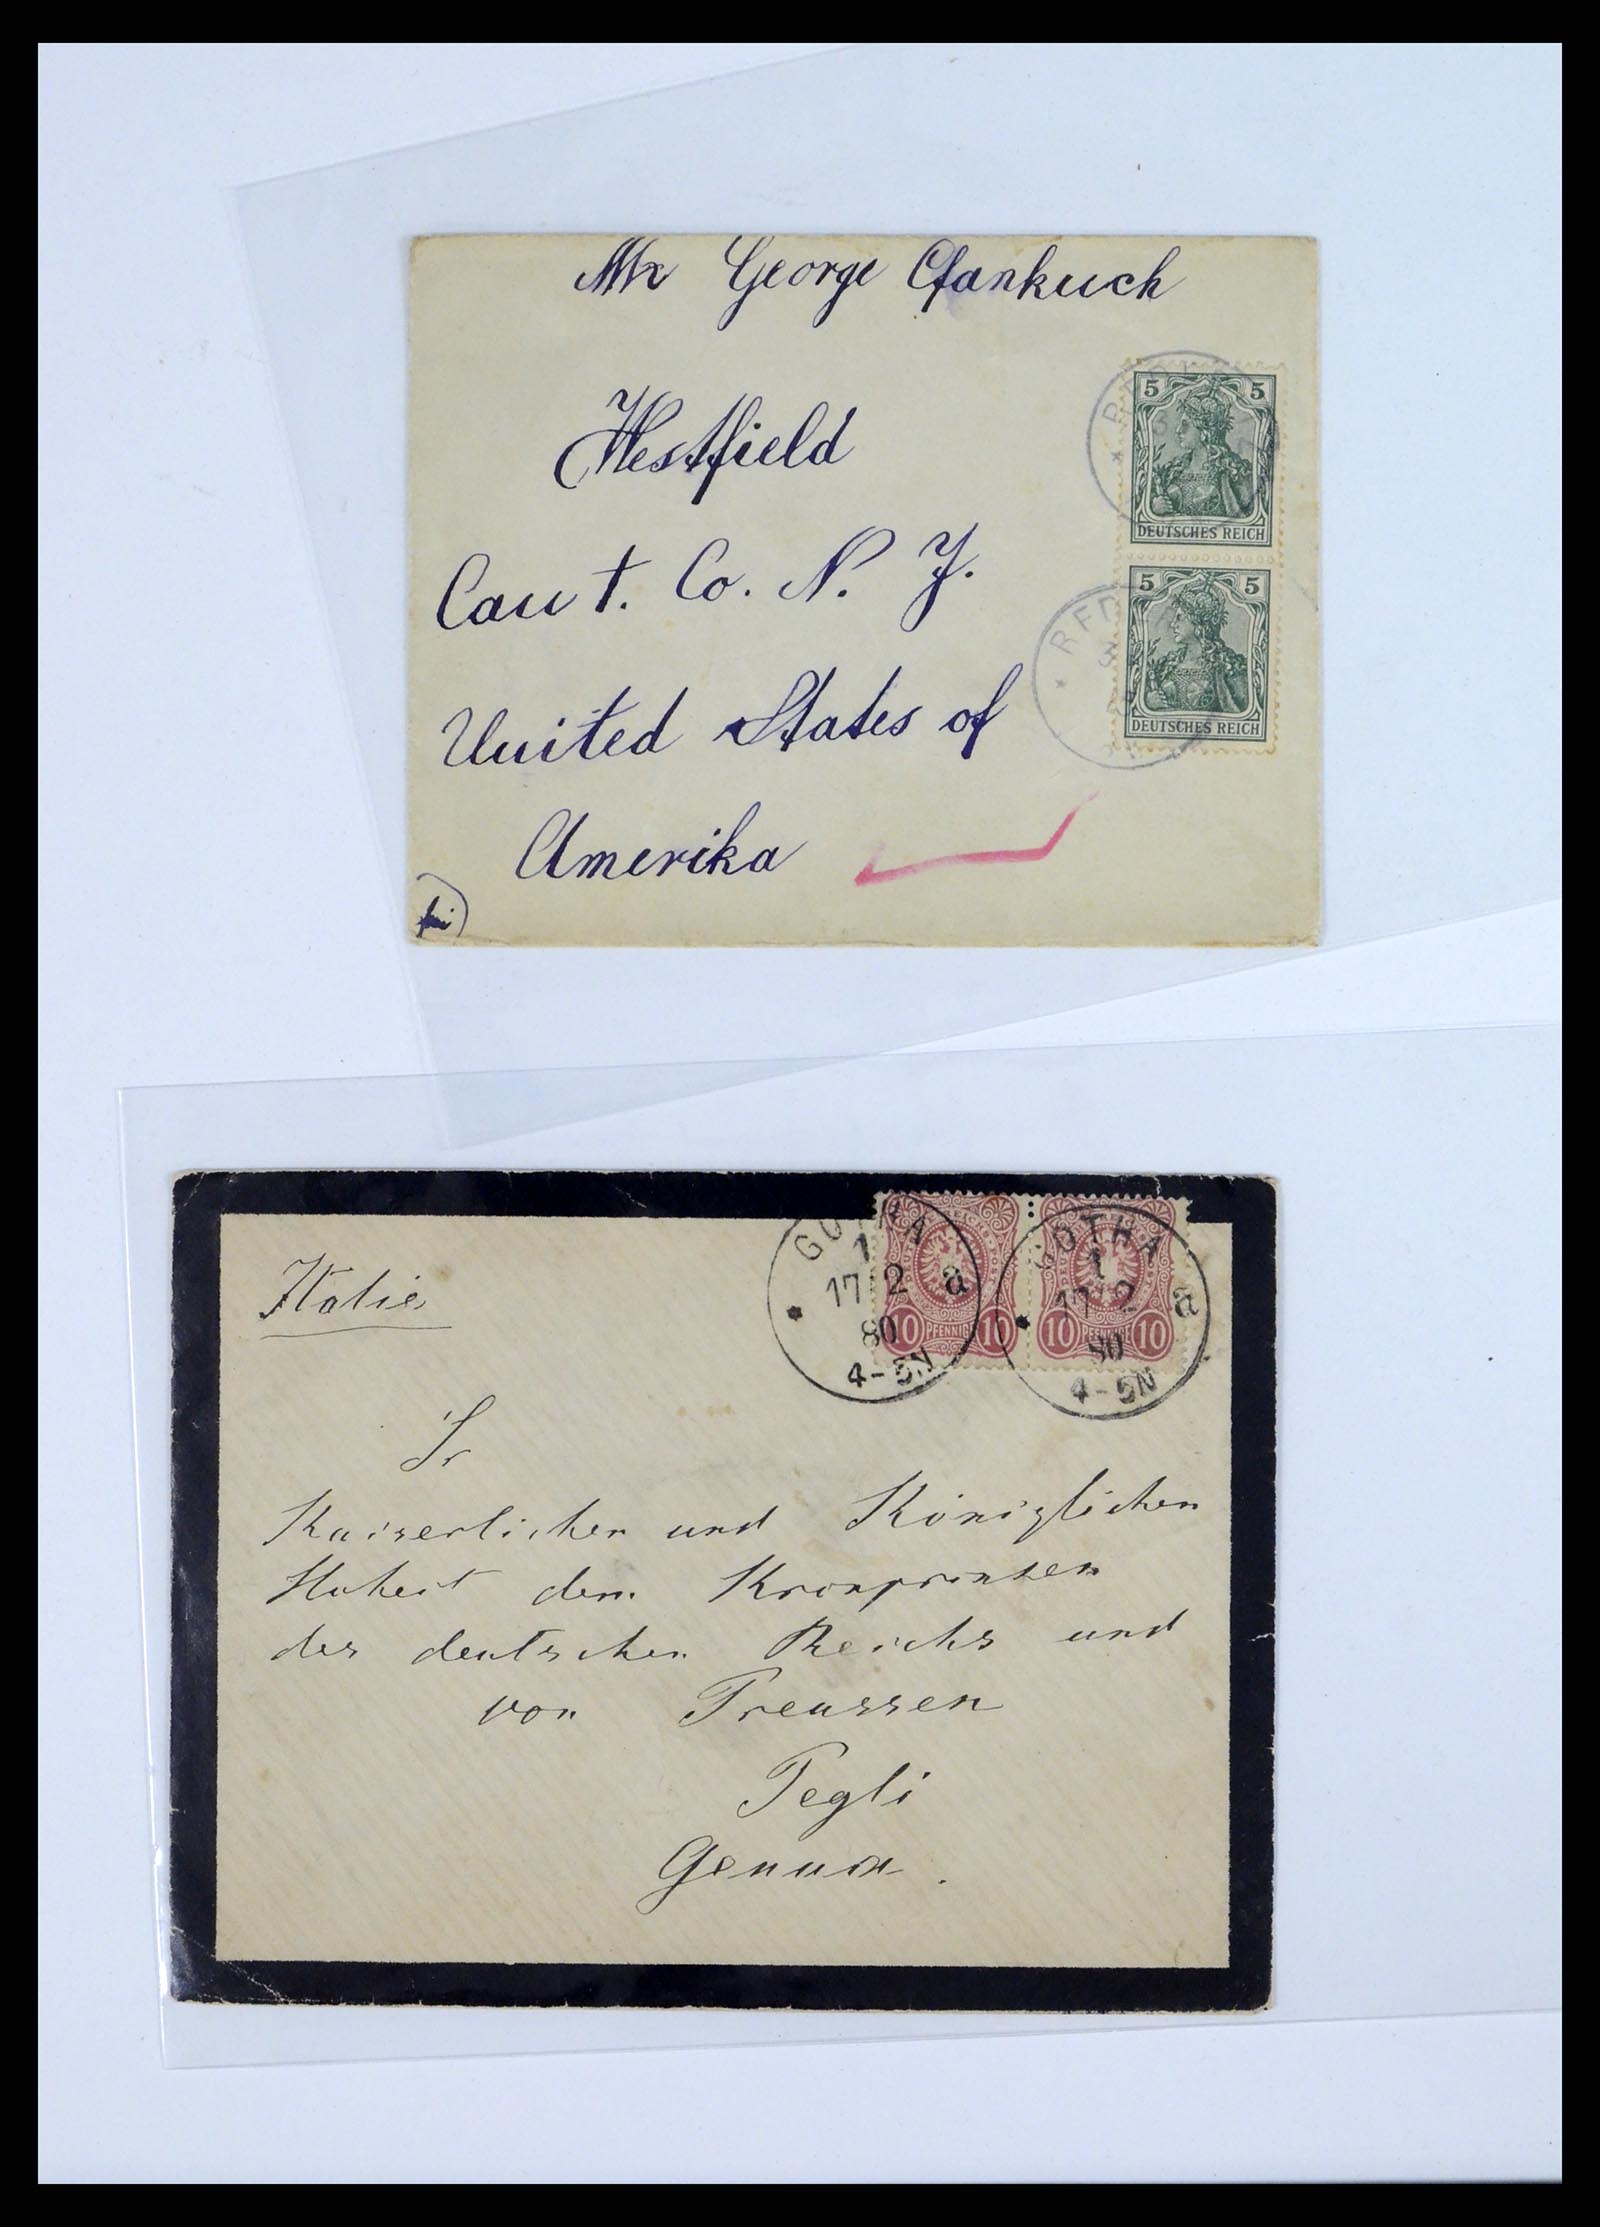 Mr George Pfankuch
Westfield
Caut. Co. N. Y.
United States of
Amerika
5 5
DEUTSCHES REICH
5 5
DEUTSCHES REICH
Italie
GOTHA
1
17 2 a
80
4-5N
10 PFENNIG 10
GOTHA
1
17 2 a
80
4-5N
10 PFENNIG 10
Sr
Kaiserlichen und Königlichen
Hoheit dem Kronprinzen
des deutschen Reichs und
von Preussen
Pegli
Genua.